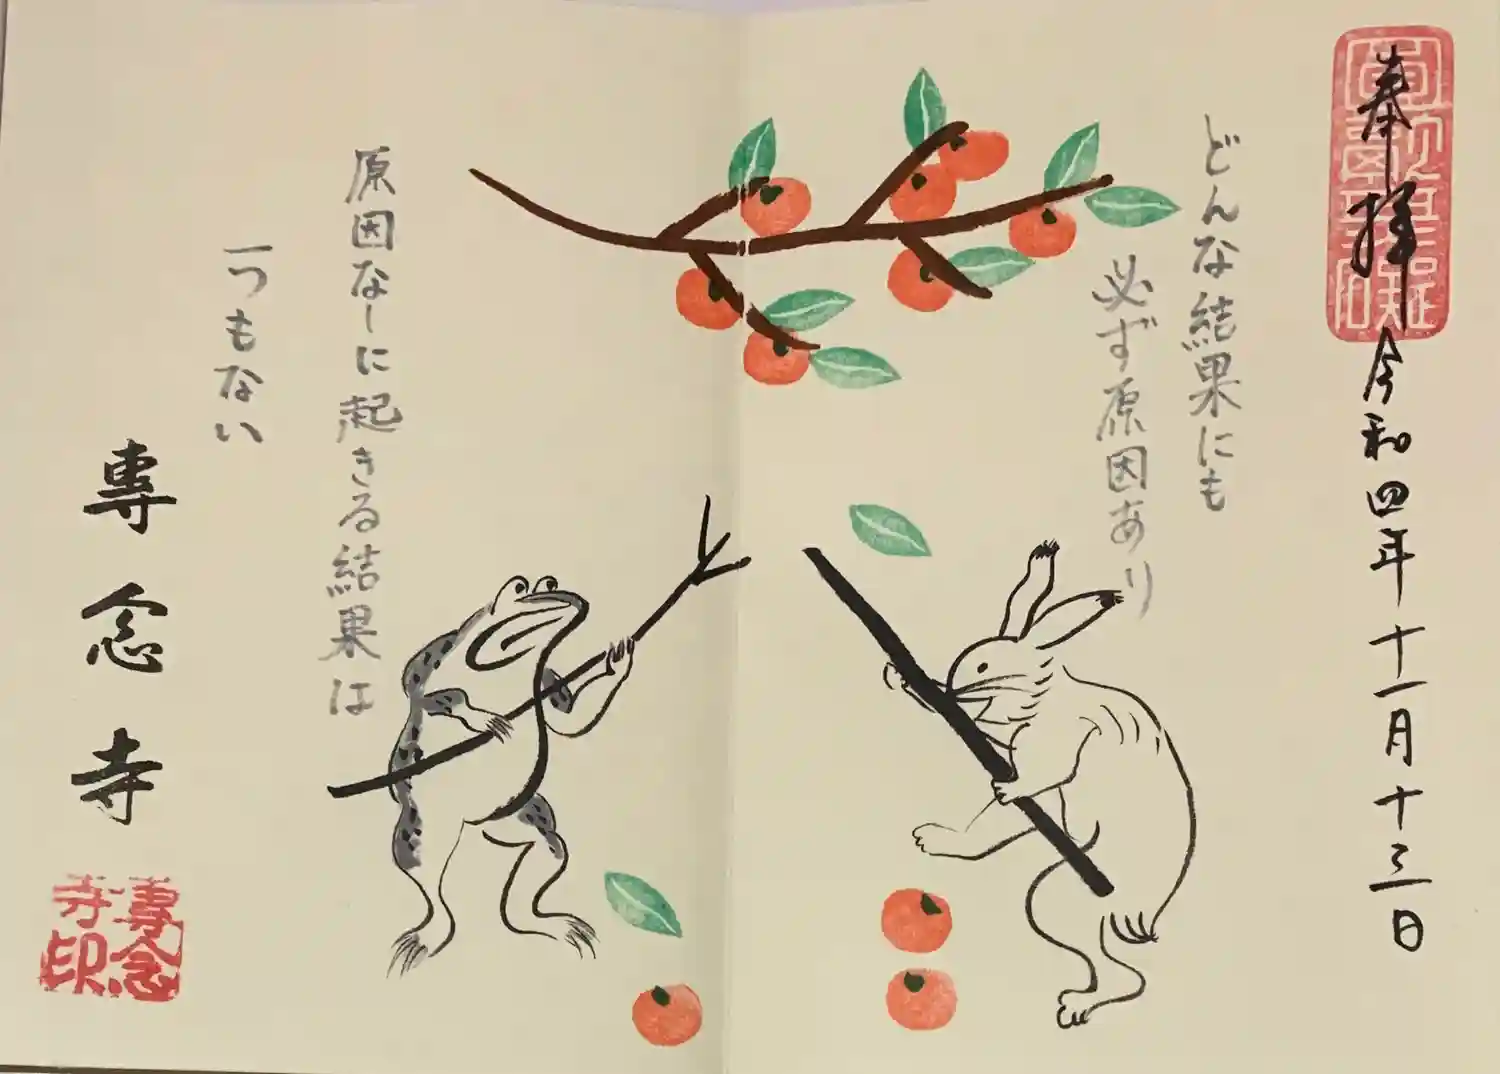 奉拝
令和四年十一月十三日
どんな結果にも
必ず原因あり
原因なしに起きる結果は
一つもない
専念寺
専念
寺印